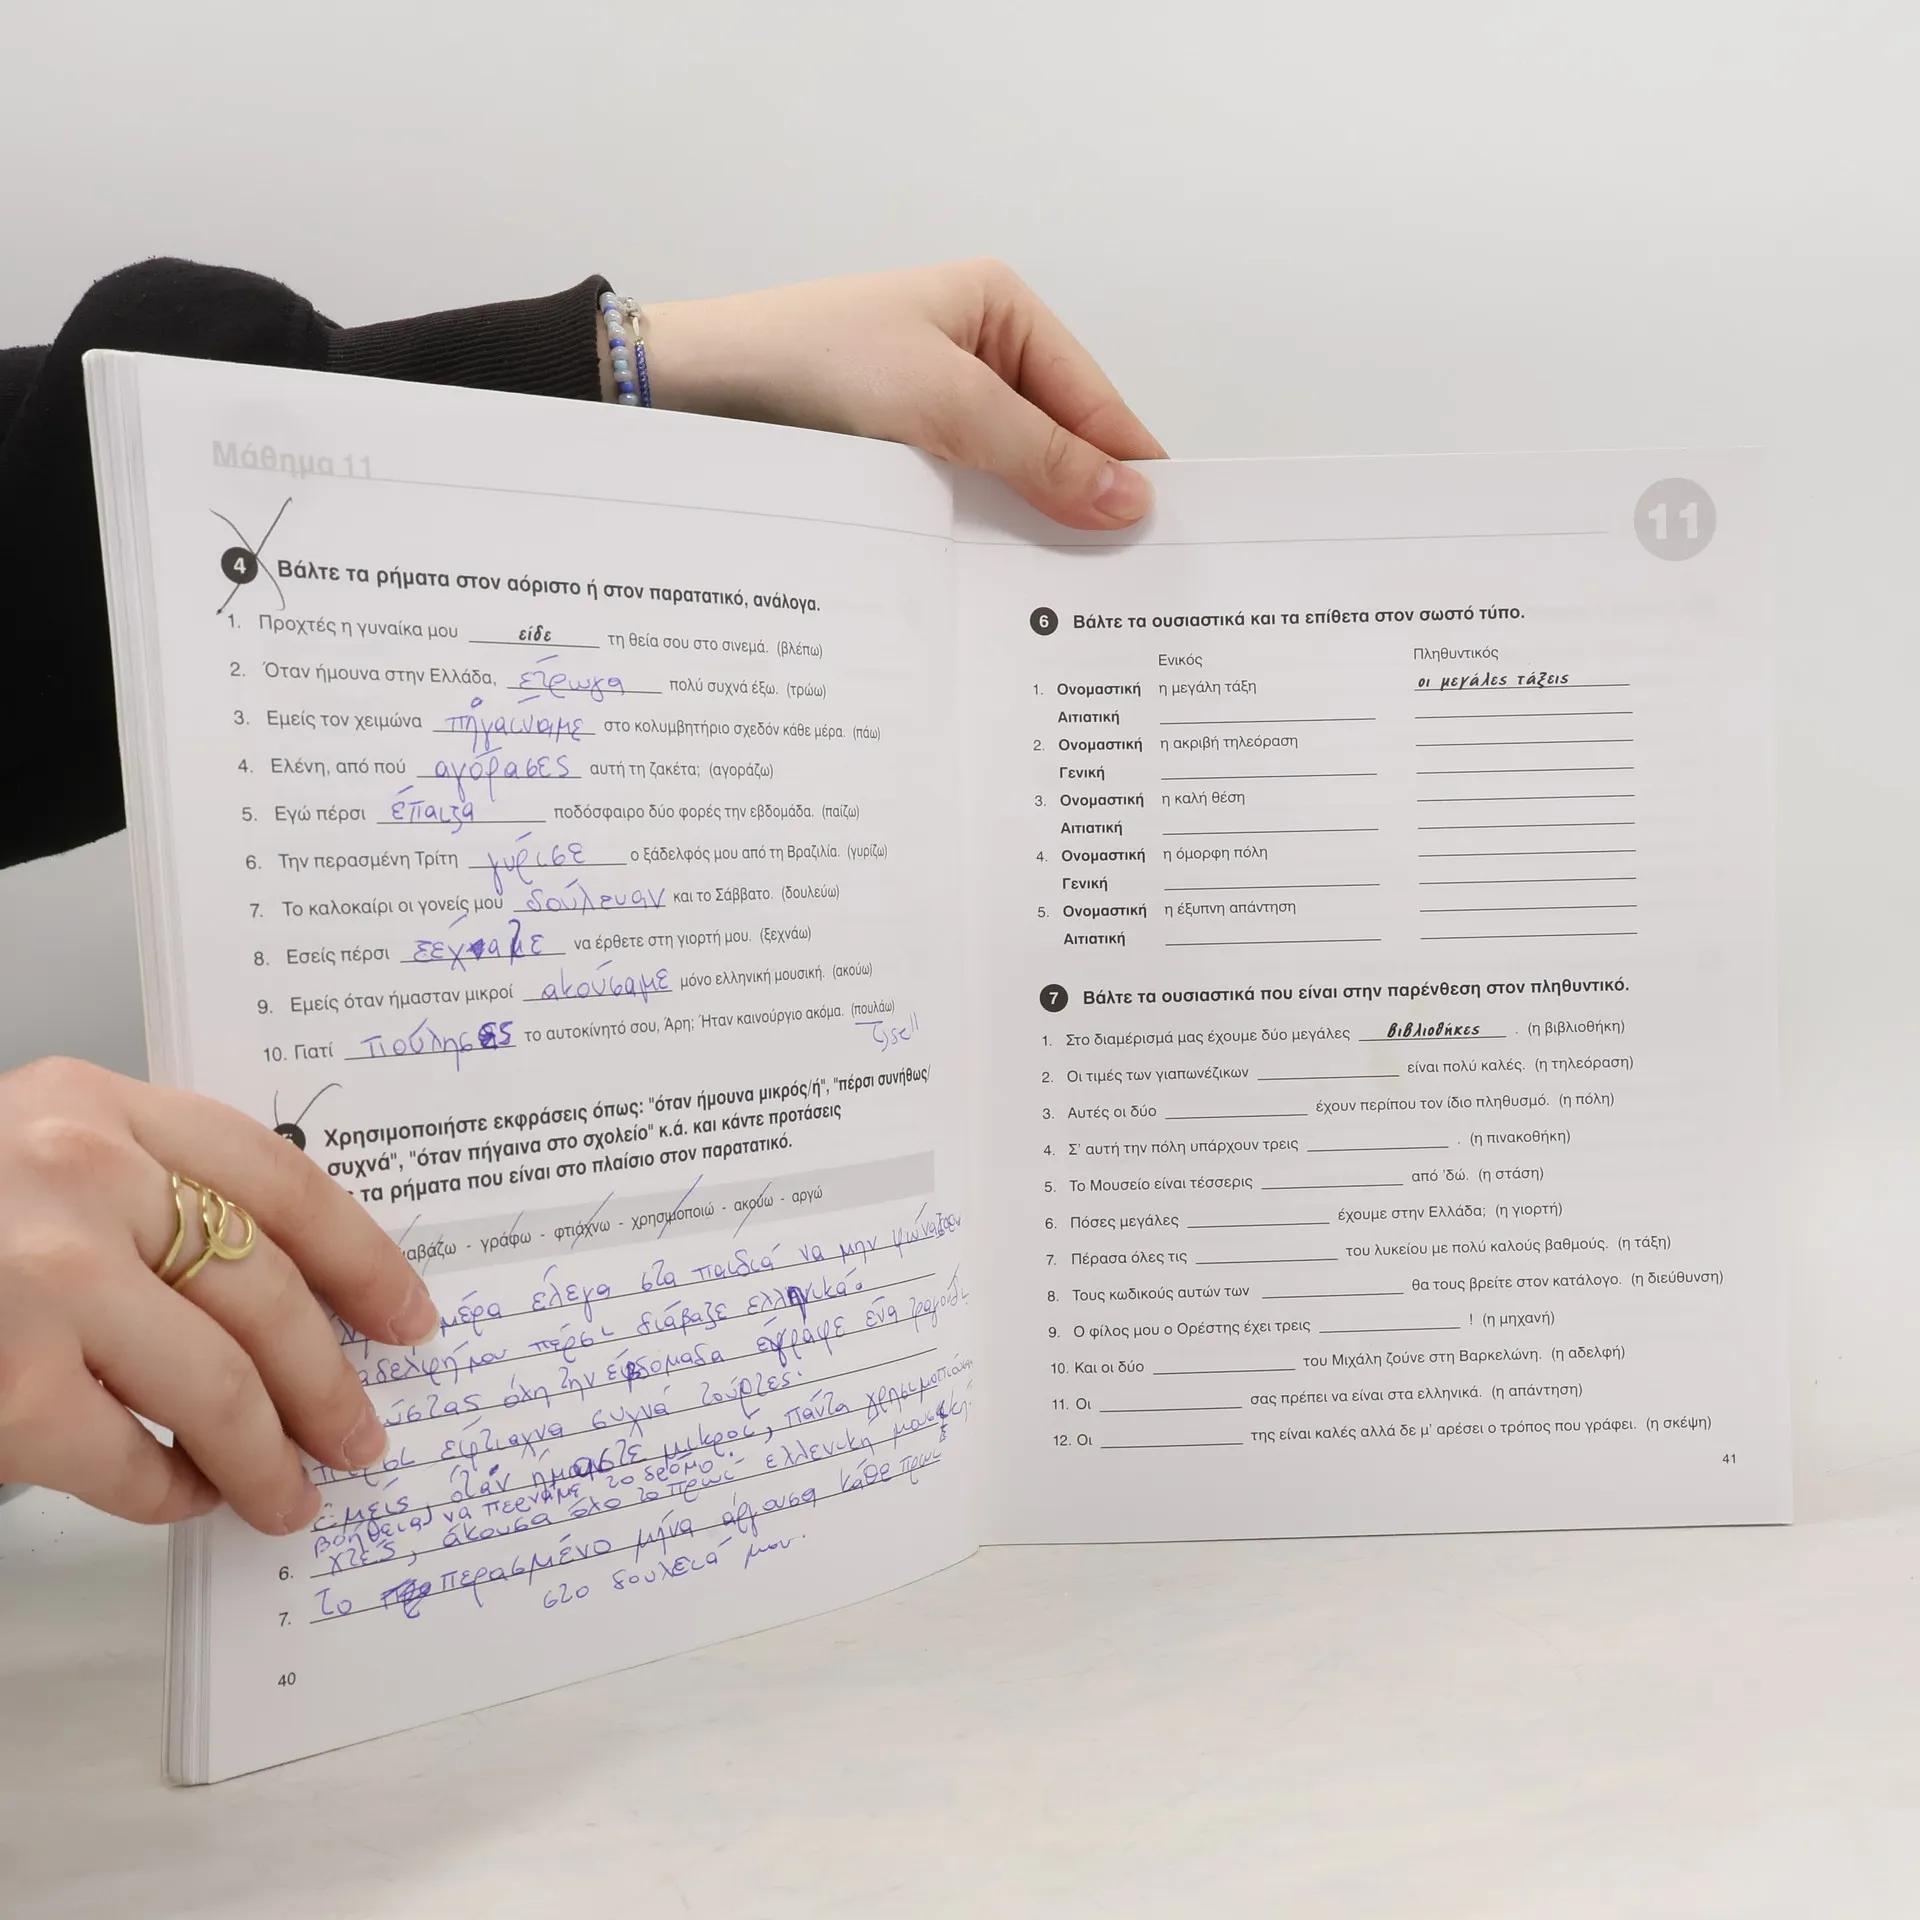 Μάθημα 11
4 Βάλτε τα ρήματα στον αόριστο ή στον παρατατικό, ανάλογα.
1. Προχτές η γυναίκα μου είδε τη θεία σου στο σινεμά. (βλέπω)
2. Όταν ήμουνα στην Ελλάδα, έτρωγα πολύ συχνά έξω. (τρώω)
3. Εμείς τον χειμώνα πηγαίναμε στο κολυμβητήριο σχεδόν κάθε μέρα. (πάω)
4. Ελένη, από πού αγόρασες αυτή τη ζακέτα; (αγοράζω)
5. Εγώ πέρσι έπαιζα ποδόσφαιρο δύο φορές την εβδομάδα. (παίζω)
6. Την περασμένη Τρίτη γύρισε ο ξάδελφός μου από τη Βραζιλία. (γυρίζω)
7. Το καλοκαίρι οι γονείς μου δούλευαν και το Σάββατο. (δουλεύω)
8. Εσείς πέρσι να έρθετε στη γιορτή μου. (ξεχνάω)
9. Εμείς όταν ήμασταν μικροί ακούσαμε μόνο ελληνική μουσική. (ακούω)
10. Γιατί πούλησες το αυτοκίνητό σου, Άρη; Ήταν καινούργιο ακόμα. (πουλάω)
sell
Χρησιμοποιήστε εκφράσεις όπως: "όταν ήμουνα μικρός/ή", "πέρσι συνήθως/
συχνά", "όταν πήγαινα στο σχολείο" κ.ά. και κάντε προτάσεις
τα ρήματα που είναι στο πλαίσιο στον παρατατικό.
γράφω - φτιάχνω - χρησιμοποιώ - ακούω - αργώ
μέρα έλεγα στα παιδιά να μην φώναζαν
μου πέρσι διάβαζε ελληνικά.
όλη την εβδομάδα έγραφε ένα τραγούδι
έφτιαχνα συχνά τούρτες.
Εμείς, όταν ήμαστε μικροί, πάντα
βοήθεια να περνάμε το δρόμο.
6. χτες, άκουσα όλο το πρωί ελλενικη μουσική.
7. το περασμένο μήνα άργουσα κάθε πρωί
στο δουλειά μου.
40
11
6 Βάλτε τα ουσιαστικά και τα επίθετα στον σωστό τύπο.
Ενικός Πληθυντικός
1. Ονομαστική η μεγάλη τάξη οι μεγάλες τάξεις
Αιτιατική
2. Ονομαστική η ακριβή τηλεόραση
Γενική
3. Ονομαστική η καλή θέση
Αιτιατική
4. Ονομαστική η όμορφη πόλη
Γενική
5. Ονομαστική η έξυπνη απάντηση
Αιτιατική
7 Βάλτε τα ουσιαστικά που είναι στην παρένθεση στον πληθυντικό.
1. Στο διαμέρισμά μας έχουμε δύο μεγάλες βιβλιοθήκες . (η βιβλιοθήκη)
2. Οι τιμές των γιαπωνέζικων είναι πολύ καλές. (η τηλεόραση)
3. Αυτές οι δύο έχουν περίπου τον ίδιο πληθυσμό. (η πόλη)
4. Σ' αυτή την πόλη υπάρχουν τρεις . (η πινακοθήκη)
5. Το Μουσείο είναι τέσσερις από 'δώ. (η στάση)
6. Πόσες μεγάλες έχουμε στην Ελλάδα; (η γιορτή)
7. Πέρασα όλες τις του λυκείου με πολύ καλούς βαθμούς. (η τάξη)
8. Τους κωδικούς αυτών των θα τους βρείτε στον κατάλογο. (η διεύθυνση)
9. Ο φίλος μου ο Ορέστης έχει τρεις ! (η μηχανή)
10. Και οι δύο του Μιχάλη ζούνε στη Βαρκελώνη. (η αδελφή)
11. Οι σας πρέπει να είναι στα ελληνικά. (η απάντηση)
12. Οι της είναι καλές αλλά δε μ' αρέσει ο τρόπος που γράφει. (η σκέψη)
41